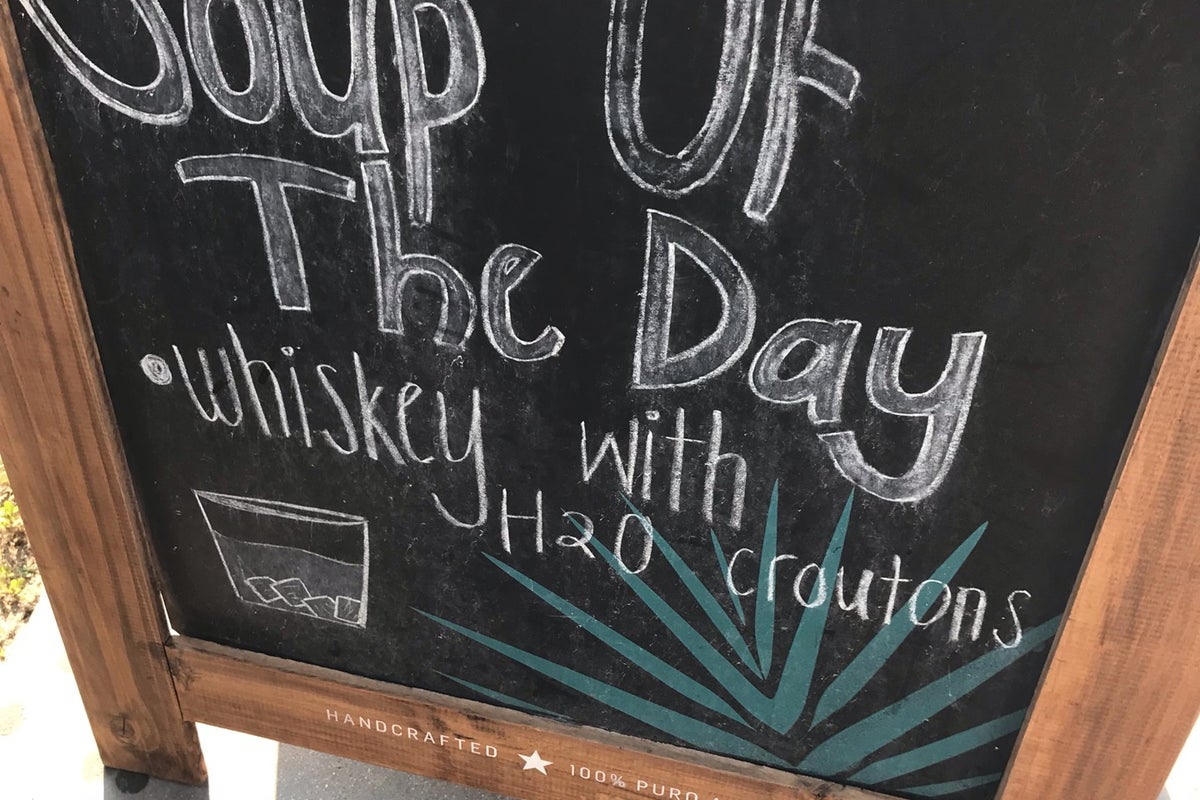 Soup Of
The Day
•Whiskey with
H2O croutons
HANDCRAFTED ★ 100% PURO